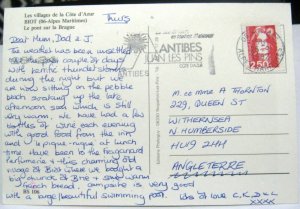 Les villages de la Côte d'Azur
BIOT (06-Alpes Maritimes)
Le pont sur la Brague
Thurs
Dear Mum, Dad & J
The weather has been unsettled
the past couple of days
with terrific thunder storms
during the night but we
are now sitting on the pebble
beach soaking up the late
afternoon sun which is still
v. warm. We have had a few
bottles of wine each evening
with good food from the inn
and le pique-nique at lunch
time. Have been to the Fragonard
Perfumerie & this charming old
village of Biot where we bought a
big chunk of Brie & some warm
french bread. Campsite is very good
with a large beautiful swimming pool. Lots of love C, K, D & L
xxxx
ANTIBES
JUAN LES PINS
ANTIBES
2,50
M. et Mme A THORNTON
229, QUEEN ST
WITHERNSEA
N HUMBERSIDE
HU19 2HH
ANGLETERRE